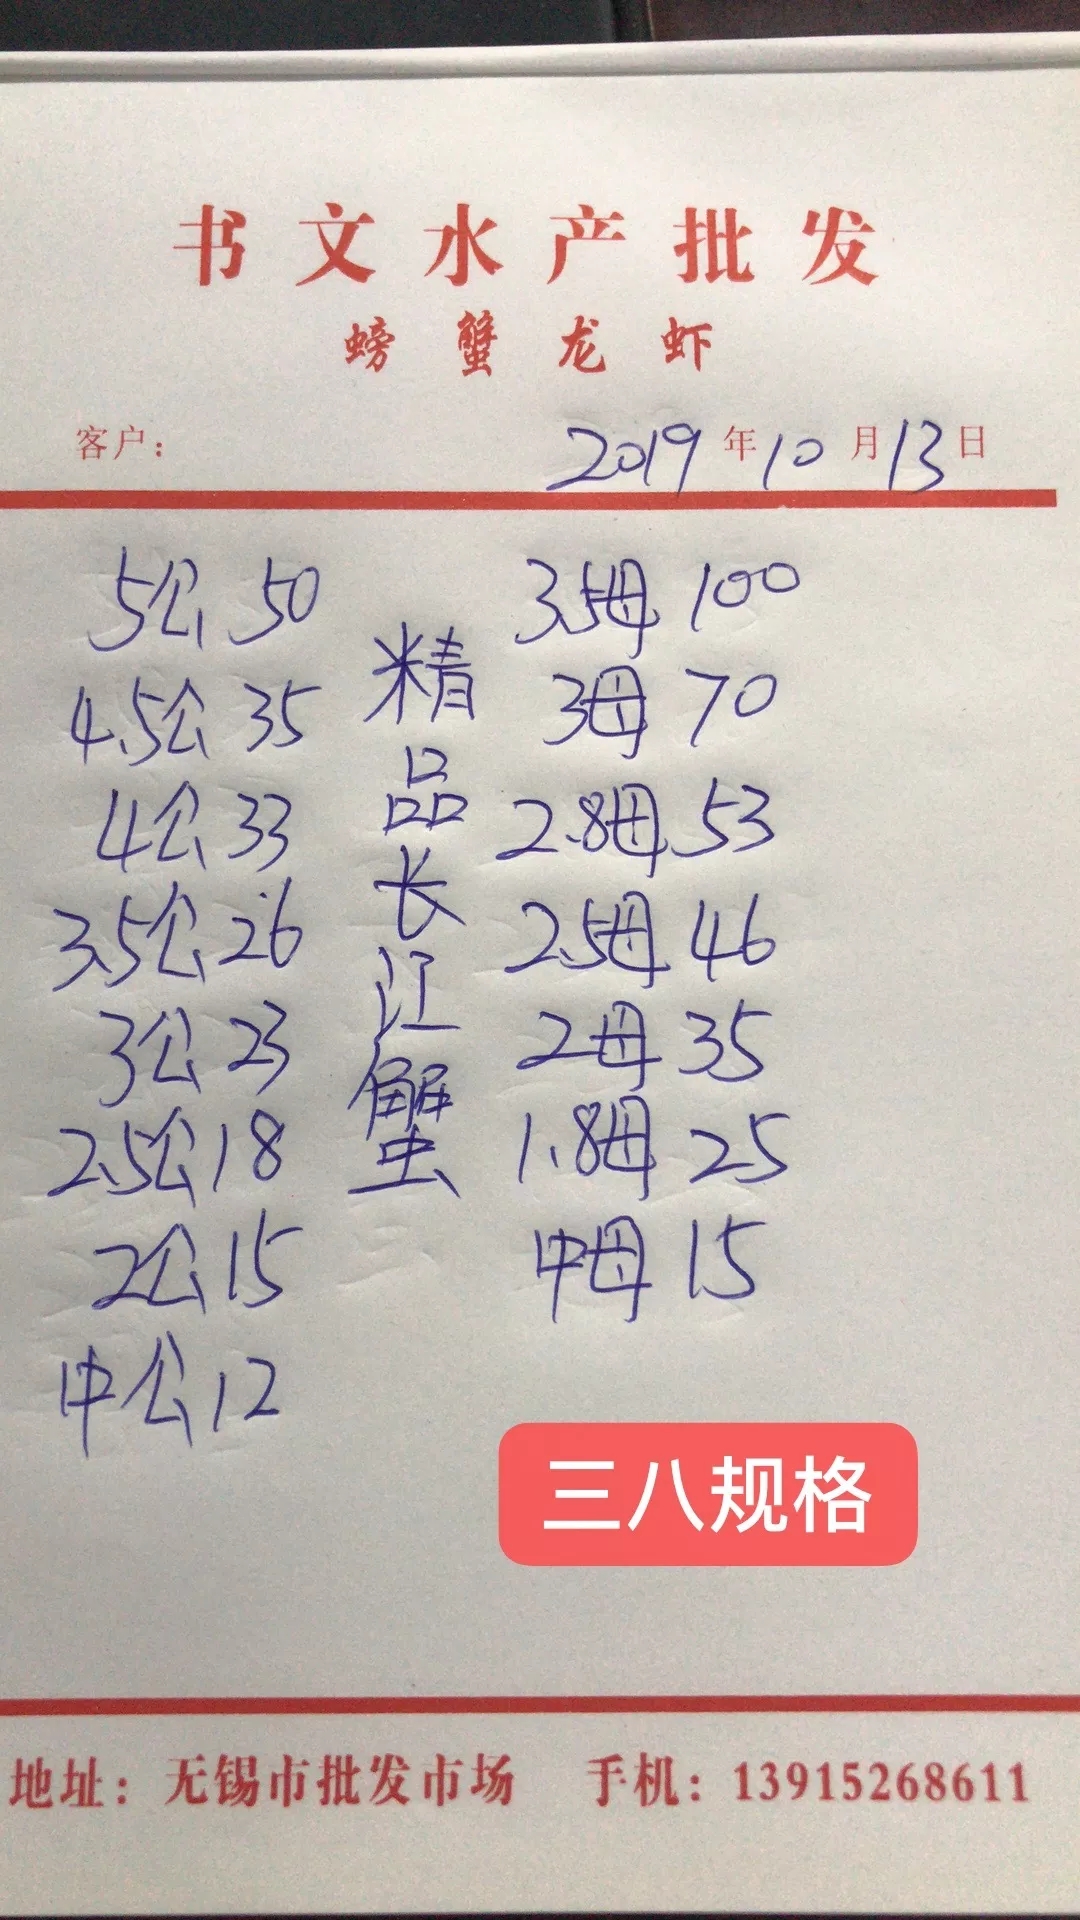 书文水产批发
螃蟹龙虾
客户： 2019年10月13日
5公 50
4.5公 35
4公 33
3.5公 26
3公 23
2.5公 18
2公 15
中公 12
精品长江蟹
3.5母 100
3母 70
2.8母 53
2.5母 46
2母 35
1.8母 25
中母 15
三八规格
地址：无锡市批发市场 手机：13915268611